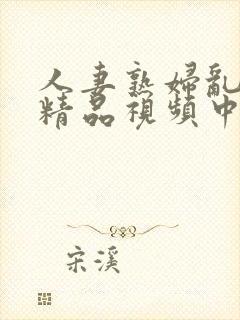 人妻熟婦亂
精品視頻中
宋溪